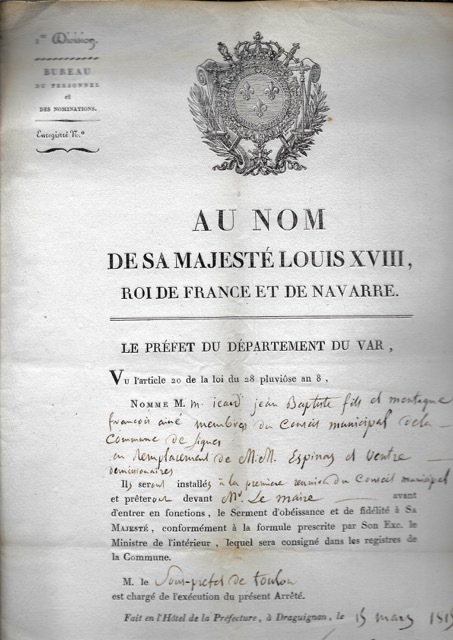 1.re Division.
BUREAU
DU PERSONNEL
et
DES NOMINATIONS.
Enregistré N.º
AU NOM
DE SA MAJESTÉ LOUIS XVIII,
ROI DE FRANCE ET DE NAVARRE.
LE PRÉFET DU DÉPARTEMENT DU VAR,
VU l'article 20 de la loi du 28 pluviôse an 8,
NOMME M. m. icard jean Baptiste fils et montagne
francois ainé membres du Conseil municipal de la
Commune de Signes
en Remplacement de M.M. Espinas et Ventre
demissionaires
Ils seront installés à la premiere reunion du Conseil municipal
et prêteront devant Mr. Le maire avant
d'entrer en fonctions, le Serment d'obéissance et de fidélité à SA
MAJESTÉ, conformément à la formule prescrite par Son Exc. le
Ministre de l'intérieur, lequel sera consigné dans les registres de
la Commune.
M. le Sous-prefet de toulon
est chargé de l'exécution du présent Arrêté.
Fait en l'Hôtel de la Préfecture, à Draguignan, le 15 mars 1815